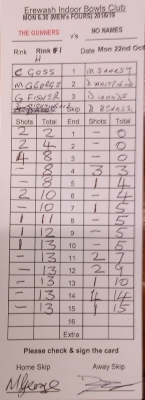 Erewash Indoor Bowls Club
MON 6.30 (MEN's FOURS) 2018/19
THE GUNNERS v's NO NAMES
Rink Rink #1 Date Mon 22nd Oct
H
C GOSS 1
M GEORGE 2
G FISHER 3
Skip
Shots Total End Shots Total
2 2 1 - 0
2 4 2 - 0
4 8 3 - 0
- 8 4 3 3
- 8 5 1 4
2 10 6 - 4
- 10 7 1 5
1 11 8 - 5
1 12 9 - 5
1 13 10 - 5
- 13 11 2 7
- 13 12 2 9
- 13 13 1 10
- 13 14 4 14
- 13 15 1 15
16
Extra
Please check & sign the card
Home Skip Away Skip
MGeorge